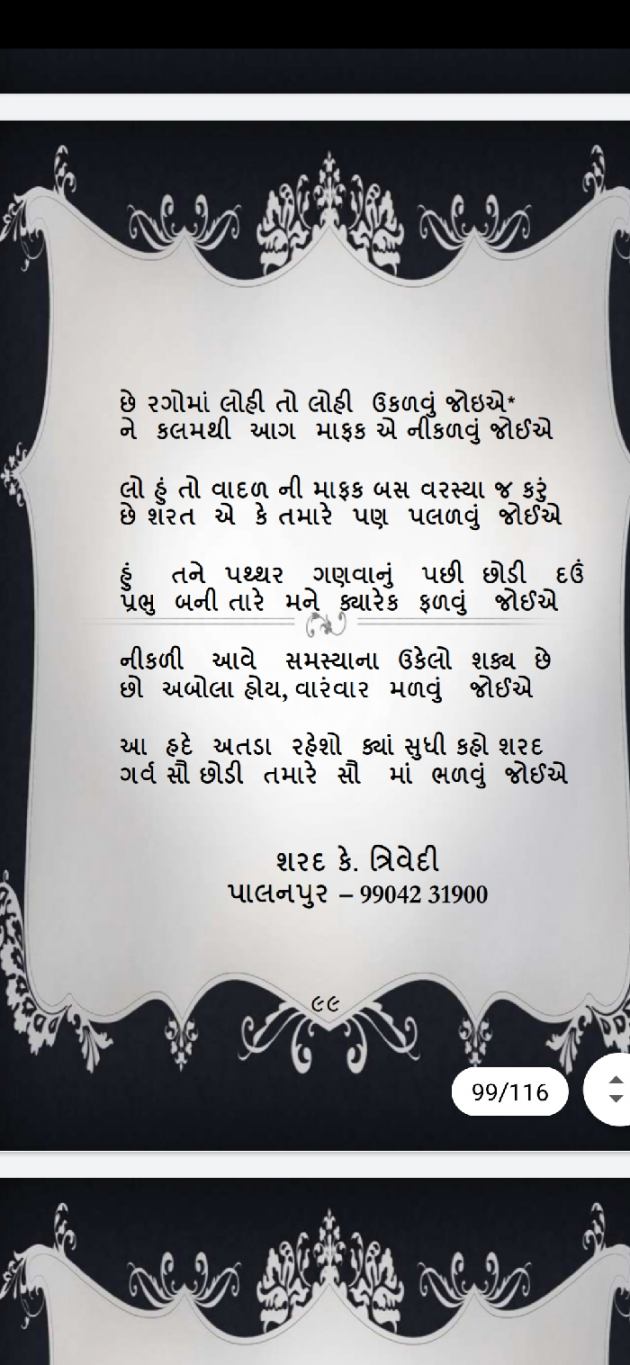 છે રગોમાં લોહી તો લોહી ઉકળવું જોઇએ*
ને કલમથી આગ માફક એ નીકળવું જોઈએ
લો હું તો વાદળ ની માફક બસ વરસ્યા જ કરું
છે શરત એ કે તમારે પણ પલળવું જોઈએ
હું તને પથ્થર ગણવાનું પછી છોડી દઉં
પ્રભુ બની તારે મને ક્યારેક ફળવું જોઈએ
નીકળી આવે સમસ્યાના ઉકેલો શક્ય છે
છો અબોલા હોય, વારંવાર મળવું જોઈએ
આ હદે અતડા રહેશો ક્યાં સુધી કહો શરદ
ગર્વ સૌ છોડી તમારે સૌ માં ભળવું જોઈએ
શરદ કે. ત્રિવેદી
પાલનપુર – 99042 31900
૯૯
99/116